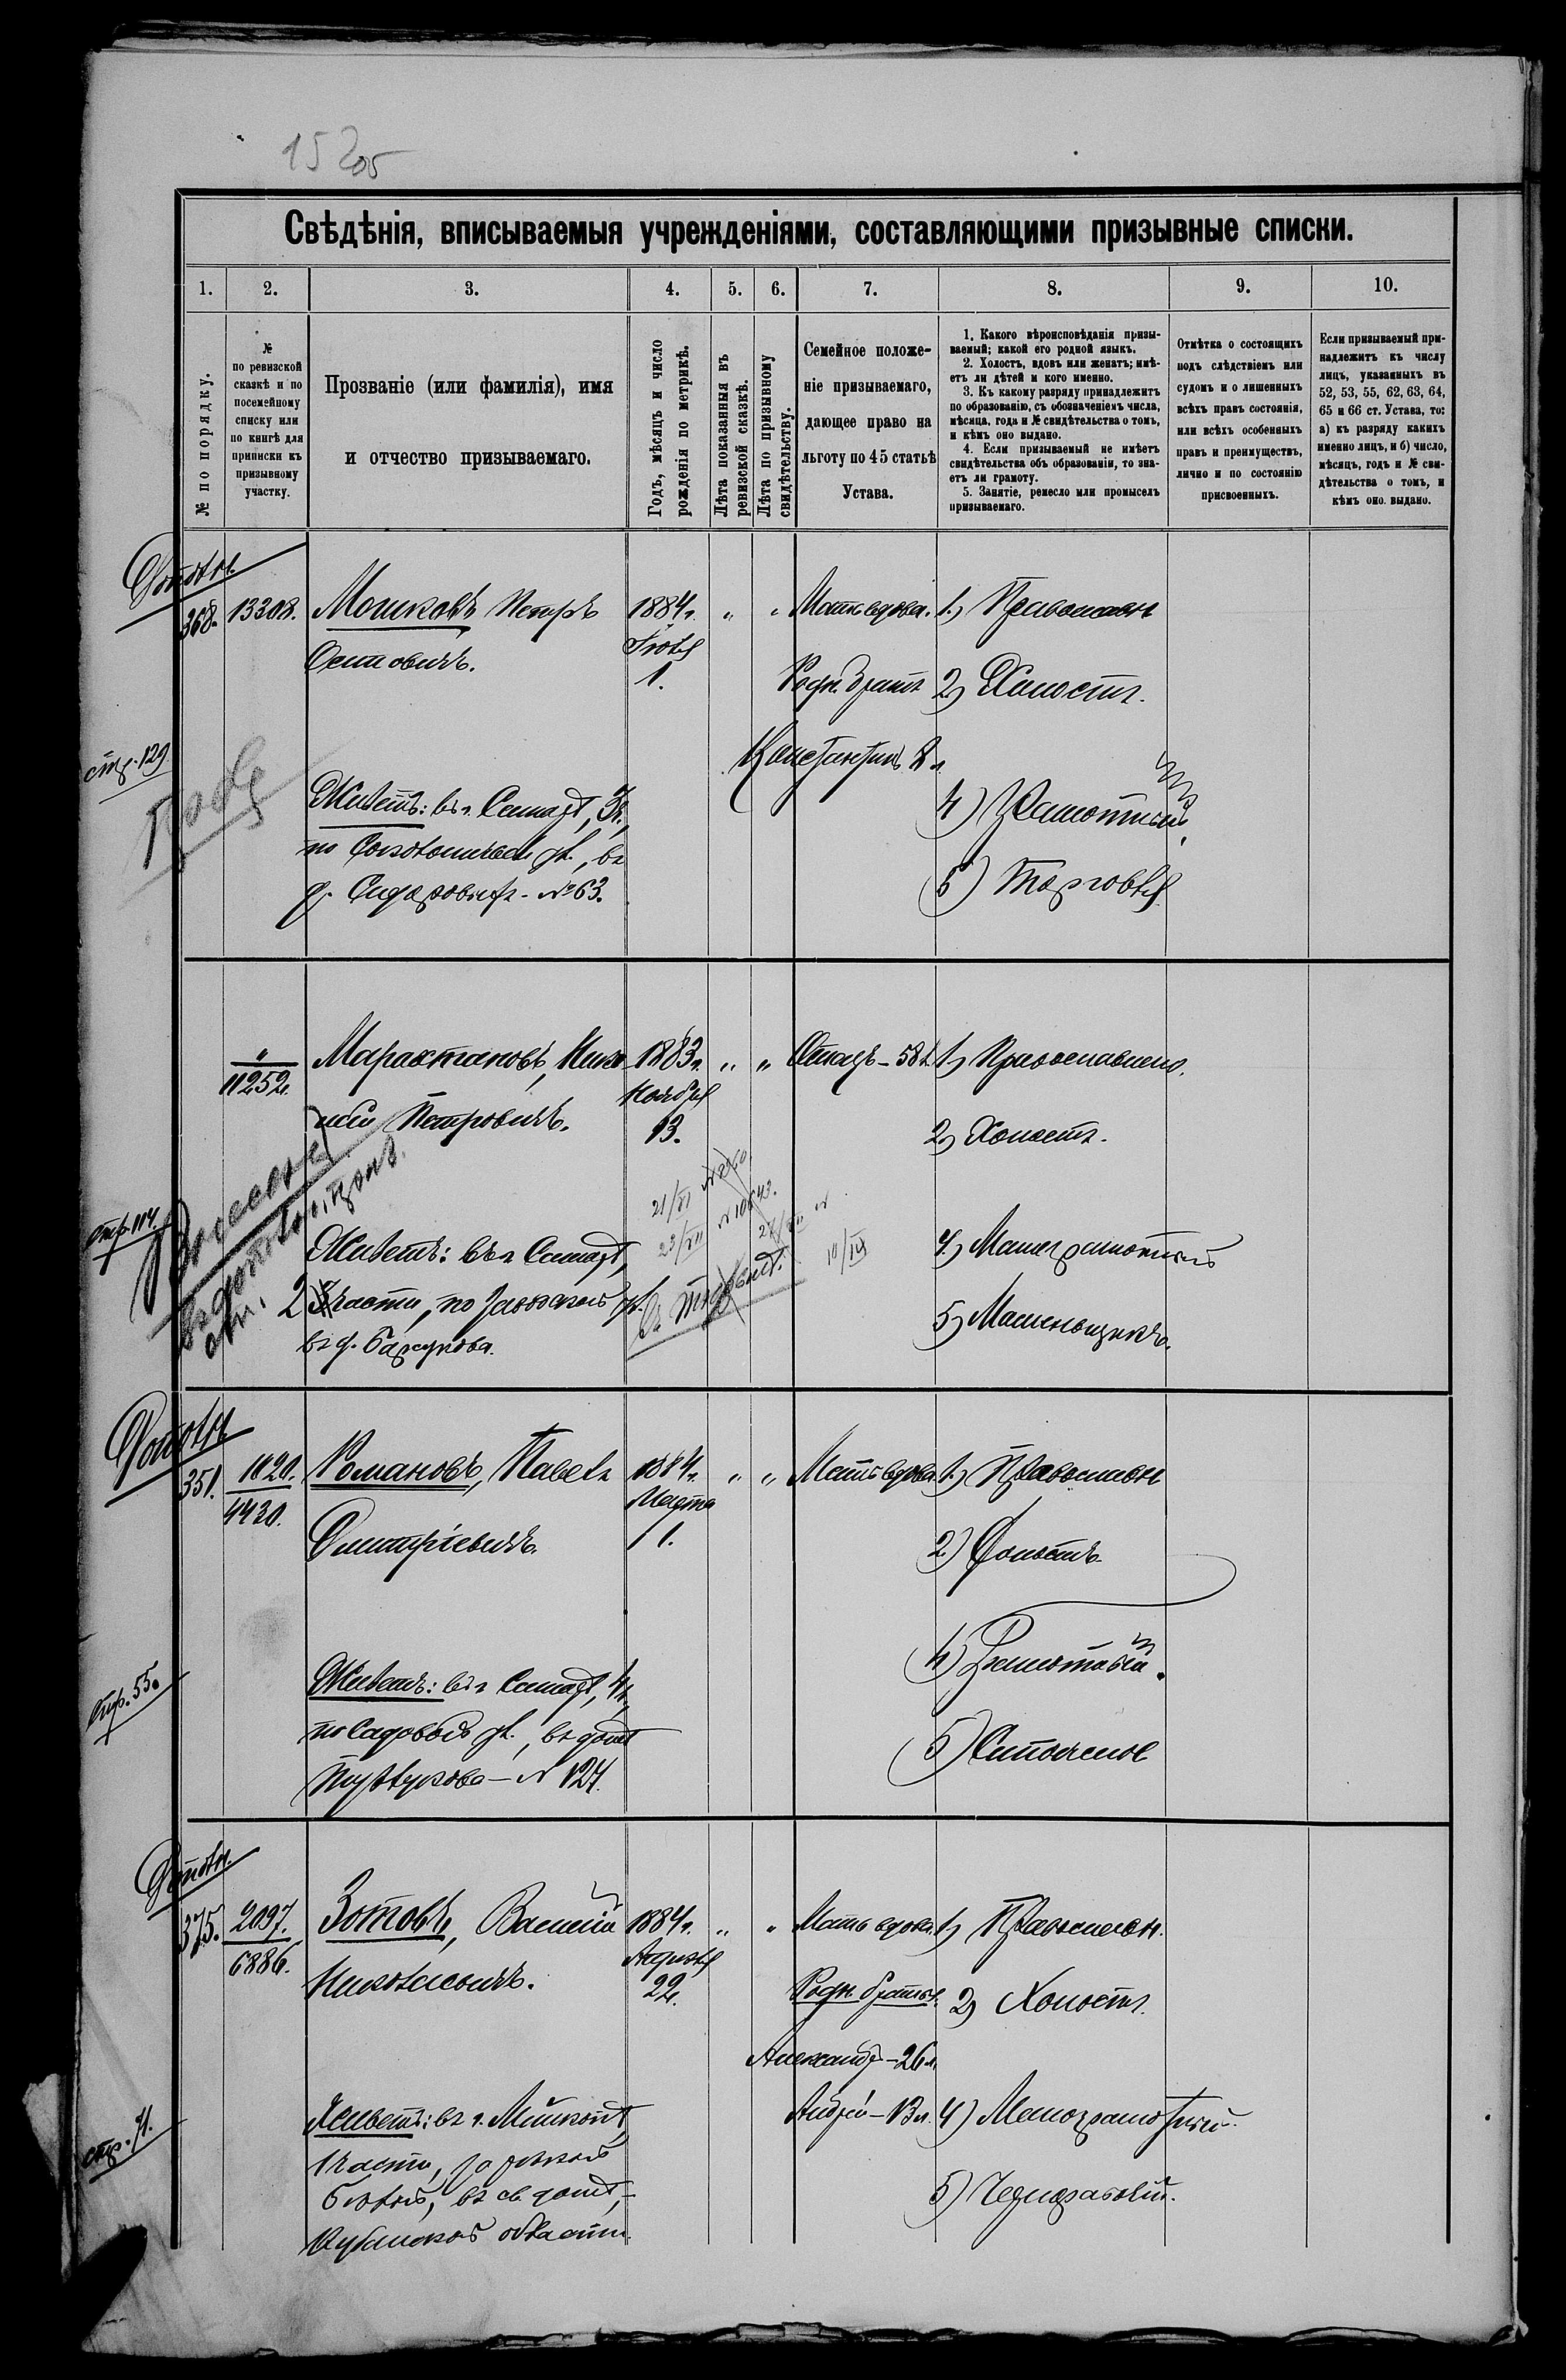 15205
Свѣдѣнія, вписываемыя учрежденіями, составляющими призывные списки.
1. 2. 3. 4. 5. 6. 7. 8. 9. 10.
№ по порядку.
№
по ревизской
сказкѣ и по
посемейному
списку или
по книгѣ для
приписки къ
призывному
участку.
Прозваніе (или фамилія), имя
и отчество призываемаго.
Годъ, мѣсяцъ и число
рожденія по метрикѣ.
Лѣта показанныя въ
ревизской сказкѣ.
Лѣта по призывному
свидѣтельству.
Семейное положе-
ніе призываемаго,
дающее право на
льготу по 45 статьѣ
Устава.
1. Какого вѣроисповѣданія призы-
ваемый; какой его родной языкъ.
2. Холостъ, вдовъ или женатъ; имѣ-
етъ ли дѣтей и кого именно.
3. Къ какому разряду принадлежитъ
по образованію, съ обозначеніемъ числа,
мѣсяца, года и № свидѣтельства о томъ,
и кѣмъ оно выдано.
4. Если призываемый не имѣетъ
свидѣтельства объ образованіи, то зна-
етъ ли грамоту.
5. Занятіе, ремесло или промыселъ
призываемаго.
Отмѣтка о состоящихъ
подъ слѣдствіемъ или
судомъ и о лишенныхъ
всѣхъ правъ состоянія,
или всѣхъ особенныхъ
правъ и преимуществъ,
лично и по состоянію
присвоенныхъ.
Если призываемый при-
надлежитъ къ числу
лицъ, указанныхъ въ
52, 53, 55, 62, 63, 64,
65 и 66 ст. Устава, то:
а) къ разряду какихъ
именно лицъ, и б) число,
мѣсяцъ, годъ и № сви-
дѣтельства о томъ, и
кѣмъ оно выдано.
Дополн.
368. 13308. Мошковъ Петръ 1884г. " " Мать вдова. 1) Православн
Осиповичъ. Іюля
1. Родн. братъ 2) Холостъ.
стр. 129. Константинъ 8 л.
Живетъ: въ г. Самарѣ, 3ч., 4) Грамотный.
по Соколинской ул., въ
д. Сидоровыхъ - №63. 5) Торговля
" 11252. Марахтановъ, Нико- 1883г. " " Отецъ - 58 л. 1) Православнаго.
лай Петровичъ. Ноября
13. 2) Холостъ.
21/VI
23/VII № 10843. 27/VII №
стр. 114. 10/IX
Живетъ: въ г. Самарѣ, 4) Малограмотный
2 части, по Заводской ул.
въ д. Барсукова. 5) Машиньщикъ.
Дополн
351. 1120. Романовъ, Павелъ 1884г. " " Мать вдова 1) Православн
4430. Дмитріевичъ. Марта
11. 2) Холостъ.
стр. 55. 4) Грамотный.
Живетъ: въ г. Самарѣ, 4ч,
по Садовой ул., въ домѣ 5)
- № 124.
Дополн.
375. 2097. Зотовъ, Василій 1884г. " " Мать вдова. 1) Православн.
6886. Николаевичъ. Августа
22. Родн. братья. 2) Холостъ.
Александръ - 26 л.
Андрей - 13 л. 4) Малограмотный.
стр. 71.
Живетъ: въ г. Майкопѣ,
1 части, за рѣкой
Бѣлой, въ св. домѣ, - 5) Чернорабочій.
Кубанской области.